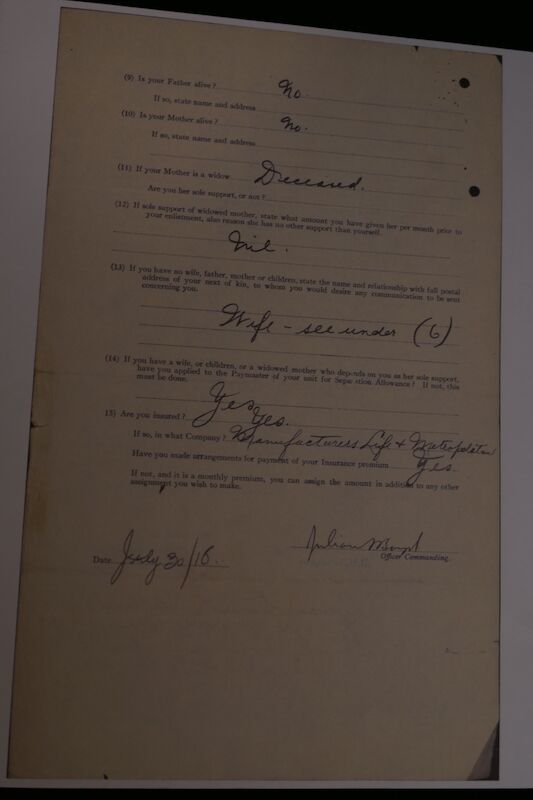 (9) Is your Father alive? No.
If so, state name and address
(10) Is your Mother alive? No.
If so, state name and address
(11) If your Mother is a widow Deceased.
Are you her sole support, or not?
(12) If sole support of widowed mother, state what amount you have given her per month prior to
your enlistment, also reason she has no other support than yourself.
Nil.
(13) If you have no wife, father, mother or children, state the name and relationship with full postal
address of your next of kin, to whom you would desire any communication to be sent
concerning you.
Wife - see under (6)
(14) If you have a wife, or children, or a widowed mother who depends on you as her sole support,
have you applied to the Paymaster of your unit for Separation Allowance? If not, this
must be done.
Yes.
15) Are you insured? Yes.
If so, in what Company? Manufacturers Life + Metropolitan
Have you made arrangements for payment of your Insurance premium Yes.
If not, and it is a monthly premium, you can assign the amount in addition to any other
assignment you wish to make.
Date July 30/16.
Officer Commanding.